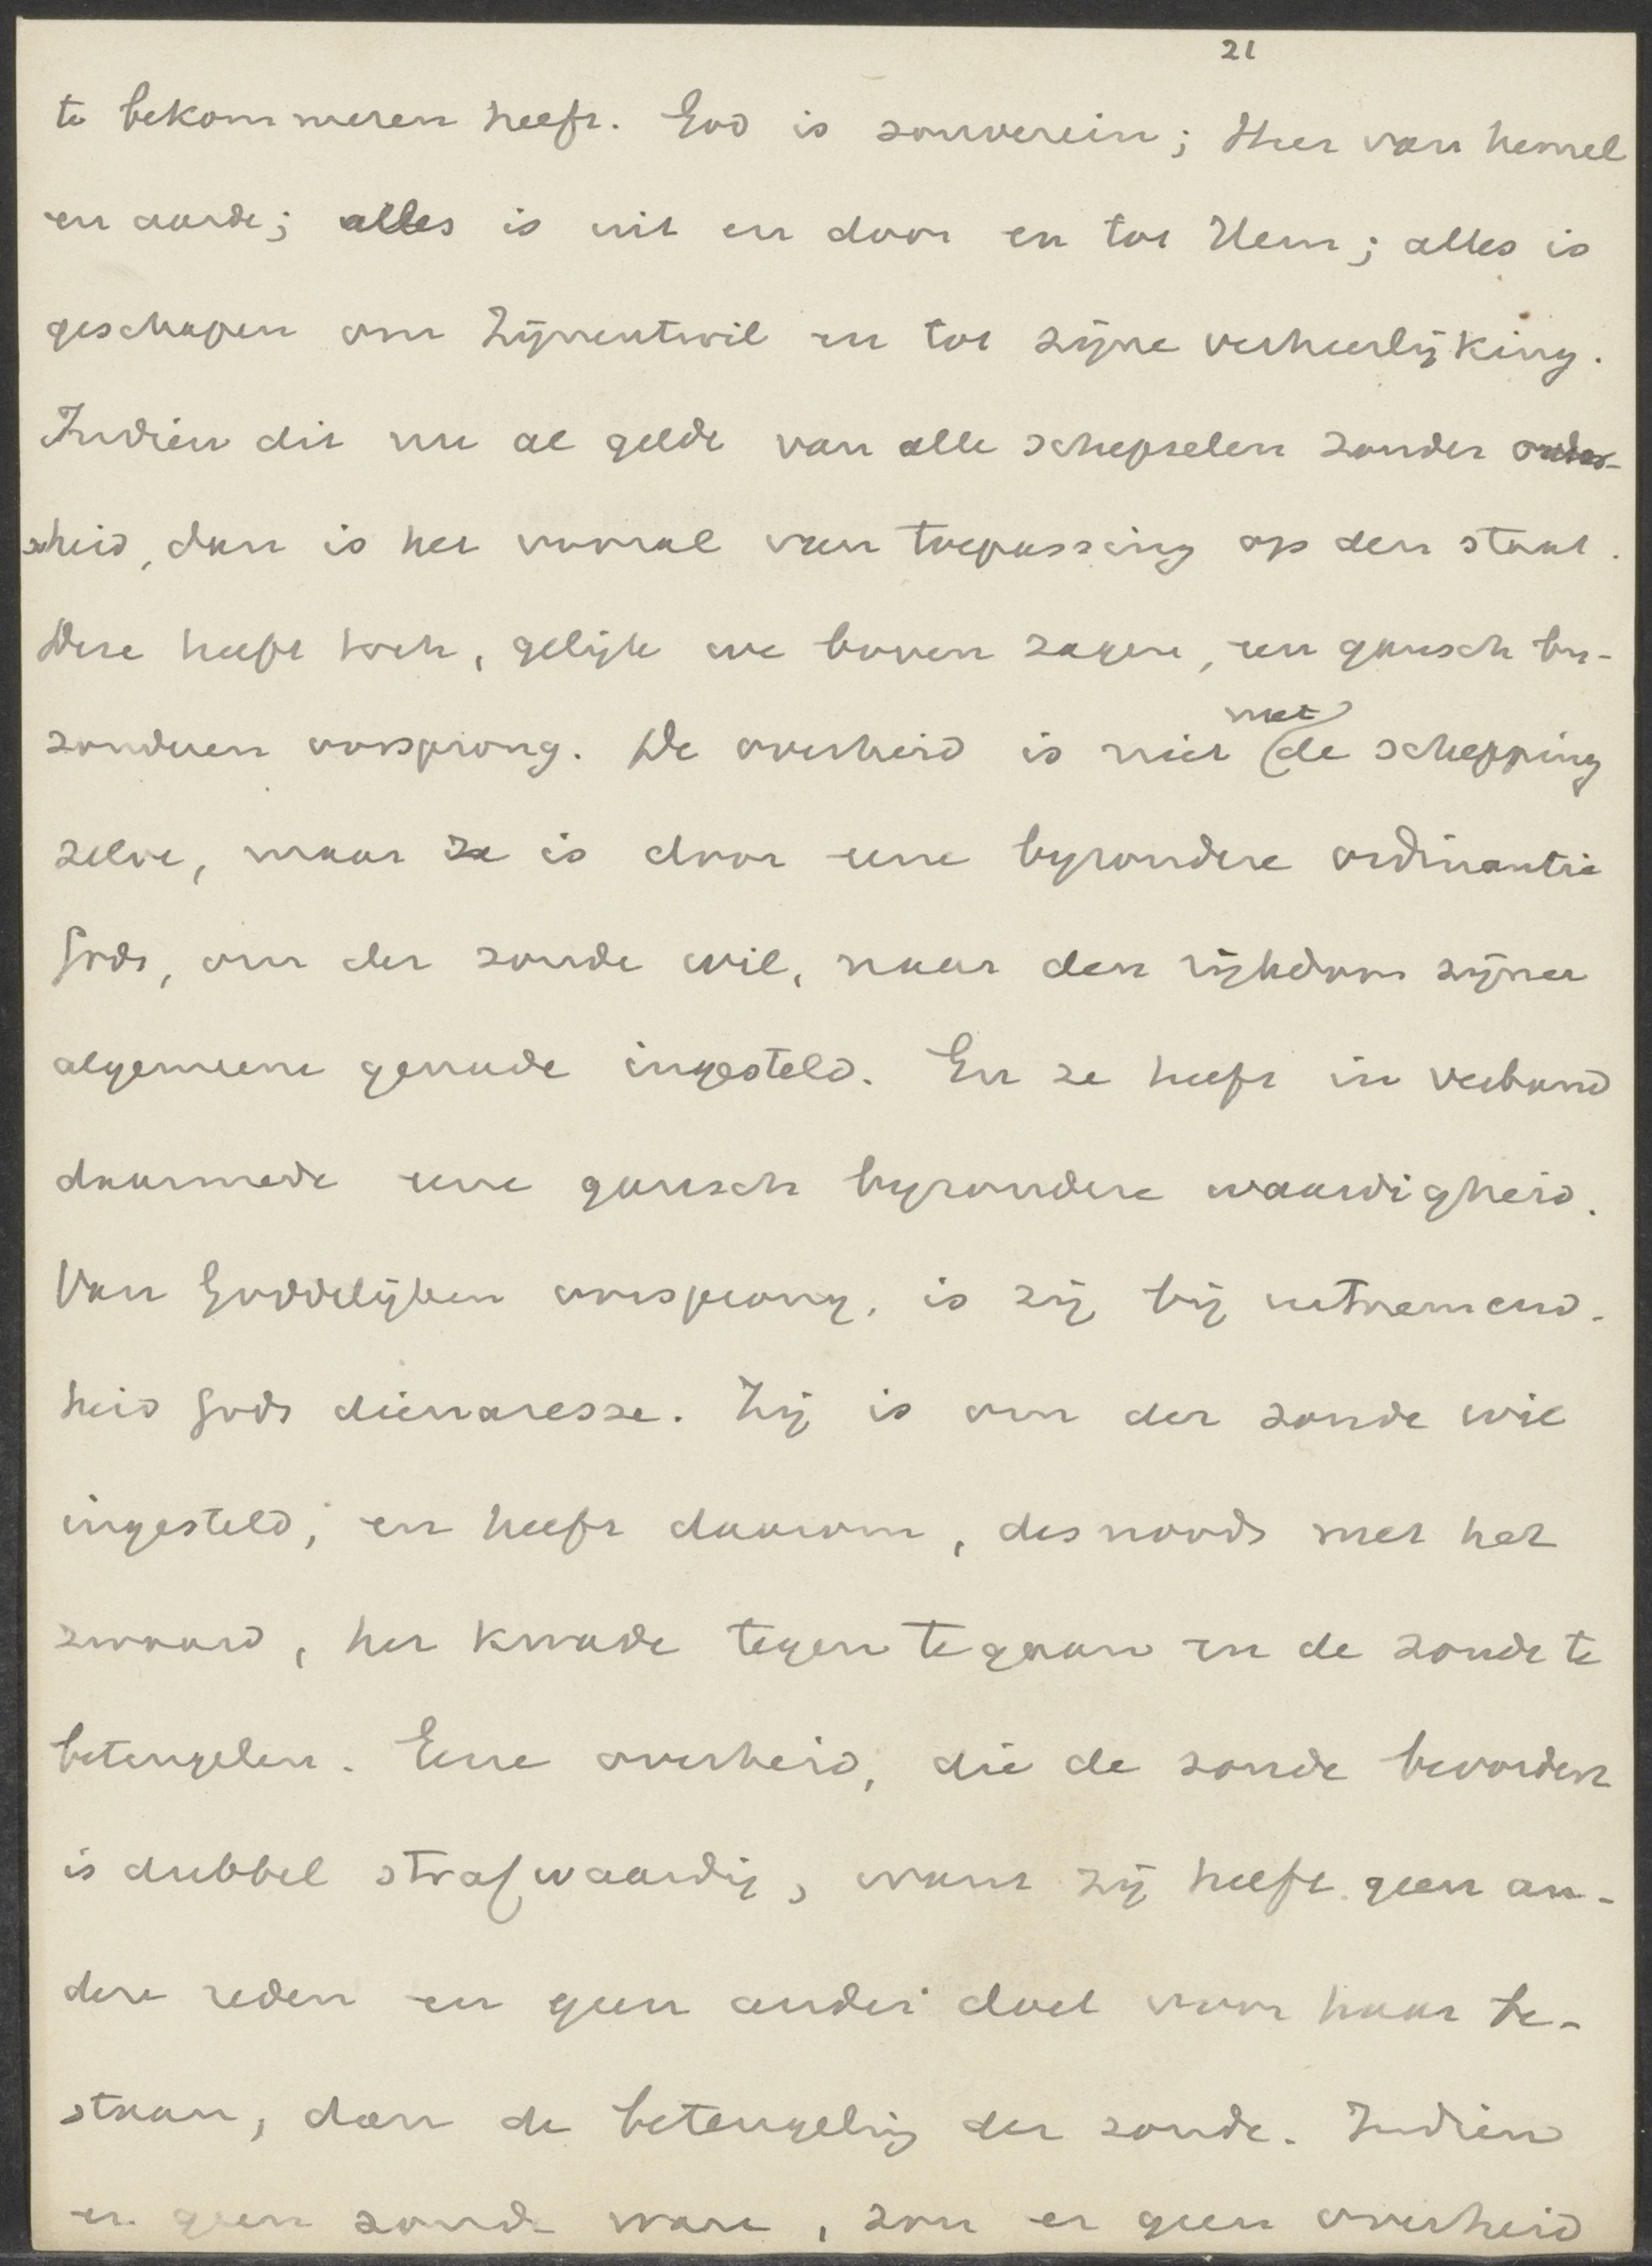 21
te bekommeren heeft. God is souverein; Heer van hemel
en aarde; alles is uit en door en tot Hem; alles is
geschapen om Zijnentwil en tot zijne verheerlijking.
Indien dit nu al gelde van alle schepselen zonder onder-
scheid, dan is het vooral van toepassing op den staat.
Deze heeft toch, gelijk we boven zagen, een gansch by-
zonderen oorsprong. De overheid is niet met de schepping
zelve, maar ze is door eene byzondere ordinantie
Gods, om der zonde wil, naar den rijkdom zijner
algemeene genade ingesteld. En ze heeft in verband
daarmede eene gansch byzondere waardigheid.
Van Goddelijken oorsprong, is zij bij uitnemend-
heid Gods dienaresse. Zij is om der zonde wil
ingesteld; en heeft daarom, desnoods met het
zwaard, het kwade tegen te gaan en de zonde te
beteugelen. Eene overheid, die de zonde bevordert
is dubbel strafwaardig, want zij heeft geen an-
dere reden en geen ander doel voor haar be-
staan, dan de beteugeling der zonde. Indien
er geen zonde ware, zou er geen overheid